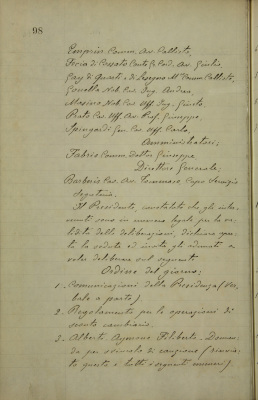 98
Comm. Av. Callisto,
di Cossato Conte G. Cord. Av. Giulio,
Gay di Quarti e di Lesegno M. Comm. Callisto,
Gonella Nob. Cav. Ing. Andrea,
Nob. Cav. Uff. Ing. Giusto,
Prato Cav. Uff. Av. Prof. Giuseppe,
Cav. Uff. Carlo,
Amministratori;
Fabris Comm. Dottor Giuseppe
Direttore Generale;
Barberis Cav. Av. Tommaso, Capo Servizio
Segreteria.
Il Presidente, constatato che gli inter-
venuti sono in numero legale per la va-
lidità delle deliberazioni, dichiara aper-
ta la seduta ed invita gli adunati a
voler deliberare sul seguente
Ordine del giorno:
1. Comunicazioni della Presidenza (Ver-
bale a parte).
2. Regolamento per le operazioni di
sconto cambiario.
3. Alberti Aymone Filiberto. Doman-
da per svincolo di cauzione (rinvia-
to questo e tutti i seguenti numeri).